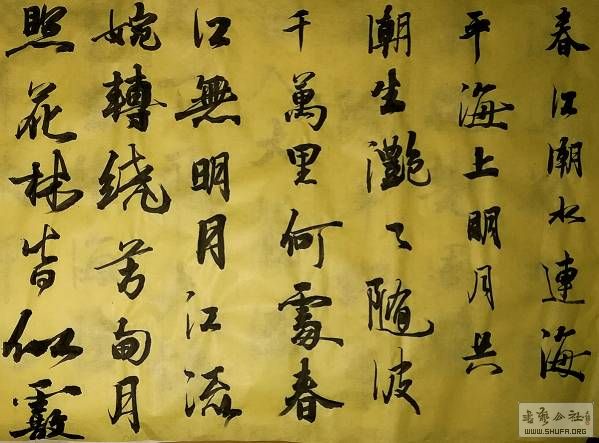 春江潮水連海
平海上明月共
潮生灩〻随波
千萬里何處春
江無明月江流
婉轉繞芳甸月
照花林皆似霰
WWW.SHUFA.ORG